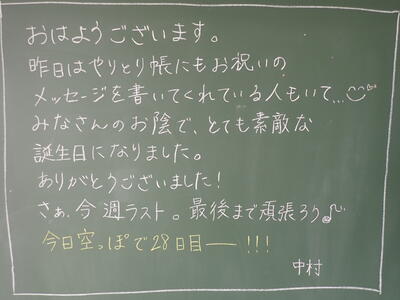 おはようございます。
昨日はやりとり帳にもお祝いの
メッセージを書いてくれている人もいて…
みなさんのお陰で、とても素敵な
誕生日になりました。
ありがとうございました！
さぁ、今週ラスト。最後まで頑張ろう♪
今日空っぽで28日目──!!!
中村